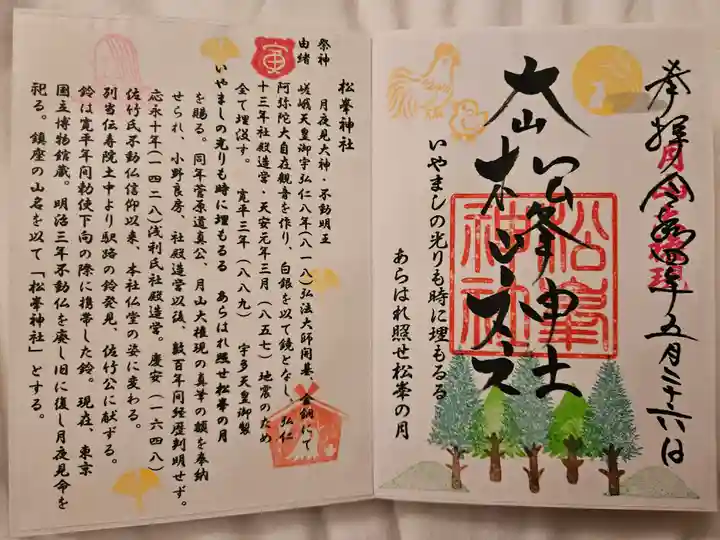 奉拝 令和四年五月二十六日
月山大権現
松峯神社
松峯神社
いやましの光りも時に埋もるる
あらはれ照せ松峯の月
松峯神社
祭神 月夜見大神・不動明王
由緒 嵯峨天皇御宇弘仁八年(八一八)弘法大師開基、金銅にて
寅
阿弥陀大自在観音を作り、白銀を以て鏡となし、弘仁
十三年社殿造営・天安元年三月(八五七)地震のため
全て埋没す。 寛平三年(八八九) 宇多天皇御製
いやましの光りも時に埋もるる あらはれ照せ松峯の月
を賜る。同年菅原道真公、月山大権現の真筆の額を奉納
せられ、小野良房、社殿造営以後、数百年間経歴判明せず。
応永十年(一四二八)浅利氏社殿造営。慶安(一六四八)
佐竹氏不動仏信仰以来、本社仏堂の姿に変わる。
別当伝寿院土中より駅路の鈴発見、佐竹公に献ずる。
鈴は寛平年間勅使下向の際に携帯した鈴。現在、東京
国立博物館蔵。明治三年不動仏を廃し旧に復し月夜見命を
祀る。鎮座の山名を以て「松峯神社」とする。